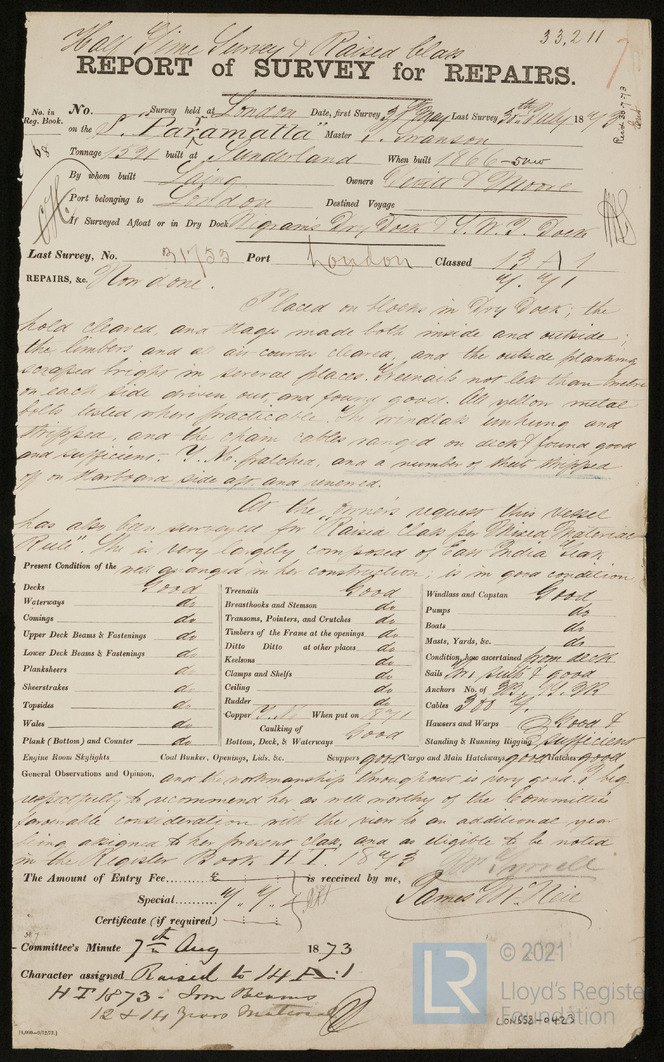 Half Time Survey & Raised Class
33,211
REPORT of SURVEY for REPAIRS.
No. in Reg. Book. No. Survey held at London Date, first Survey 31st May Last Survey 30th July 1873
on the S. Paramatta Master Swanson
68 Tonnage 1521 built at Sunderland When built 1866-5
By whom built Laing Owners Devitt & Moore
Port belonging to London Destined Voyage
If Surveyed Afloat or in Dry Dock Wigrams Dry Dock & S.W.I. Dock
Last Survey, No. 31733 Port London Classed 13 A 1
REPAIRS, &c. Now done.
Placed on blocks in Dry Dock; the
hold cleared, and stages made both inside and outside;
the limbers and all air courses cleared, and the outside planking
scraped bright in several places. Treenails not less than twelve
on each side driven out, and found good. All yellow metal
bolts tested where practicable. The windlass unhung and
stripped, and the chain cables ranged on deck & found good
and sufficient. Y.M. patched, and a number of sheets stripped
off on starboard side aft, and renewed.
At the owner's request this vessel
has also been surveyed for "Raised Class per Mixed Material
Rule". She is very largely composed of East India Teak
Present Condition of the well arranged in her construction; is in good condition
Decks Good Treenails Good Windlass and Capstan Good
Waterways do Breasthooks and Stemson do Pumps do
Comings do Transoms, Pointers, and Crutches do Boats do
Upper Deck Beams & Fastenings do Timbers of the Frame at the openings do Masts, Yards, &c. do
Lower Deck Beams & Fastenings do Ditto Ditto at other places do Condition, how ascertained from deck
Planksheers do Keelsons do Sails two suits & good
Sheerstrakes do Clamps and Shelfs do Anchors No. of 3B, 1S, 2K
Topsides do Ceiling do Cables 300
Wales do Rudder do Hawsers and Warps Good &
Plank (Bottom) and Counter do Copper Y.M. When put on 1871 Standing & Running Rigging sufficient
Caulking of Bottom, Deck, & Waterways Good
Engine Room Skylights Coal Bunker, Openings, Lids, &c. Scuppers good Cargo and Main Hatchways good Hatches good
General Observations and Opinion, and the workmanship throughout is very good. I beg
respectfully to recommend her as well worthy of the Committee's
favourable consideration with the view to an additional year
being assigned to her present class, and as eligible to be noted
in the Register Book H T. 1873
The Amount of Entry Fee...... £ is received by me,
Special..........
Certificate (if required) James McNeil
Committee's Minute 7th Aug 1873
Character assigned Raised to 14 A.1
H T 1873 - Iron Beams
12 & 14 Years Material
[4,000—3/12/72.]
LR
© 2021
Lloyd's Register
Foundation
LON558-0423